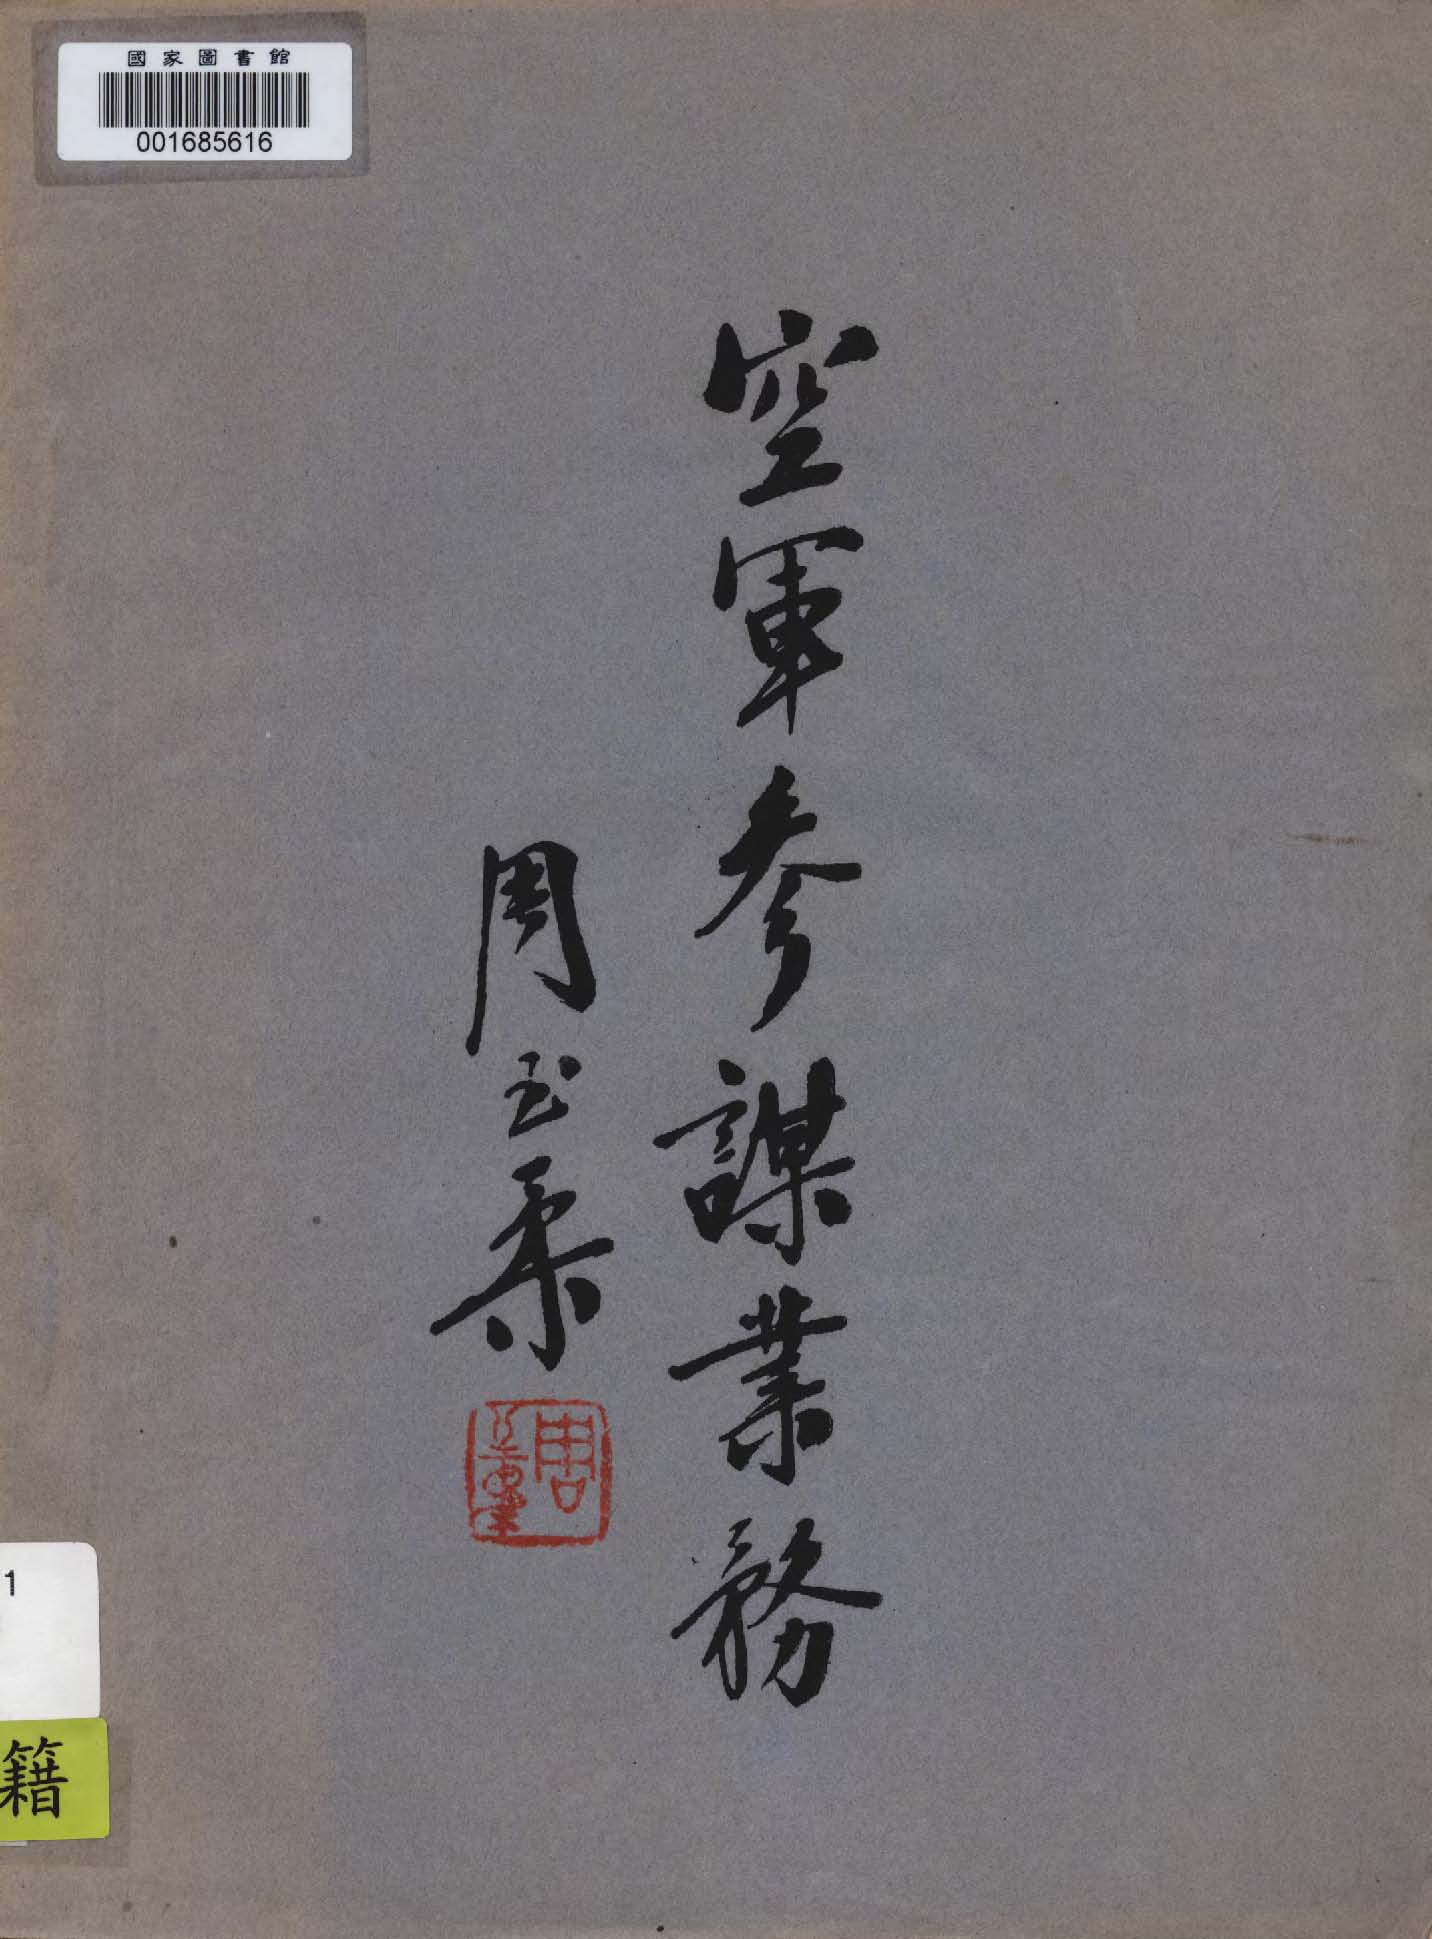 國家圖書館
001685616
空軍參謀業務
周至柔
1
籍